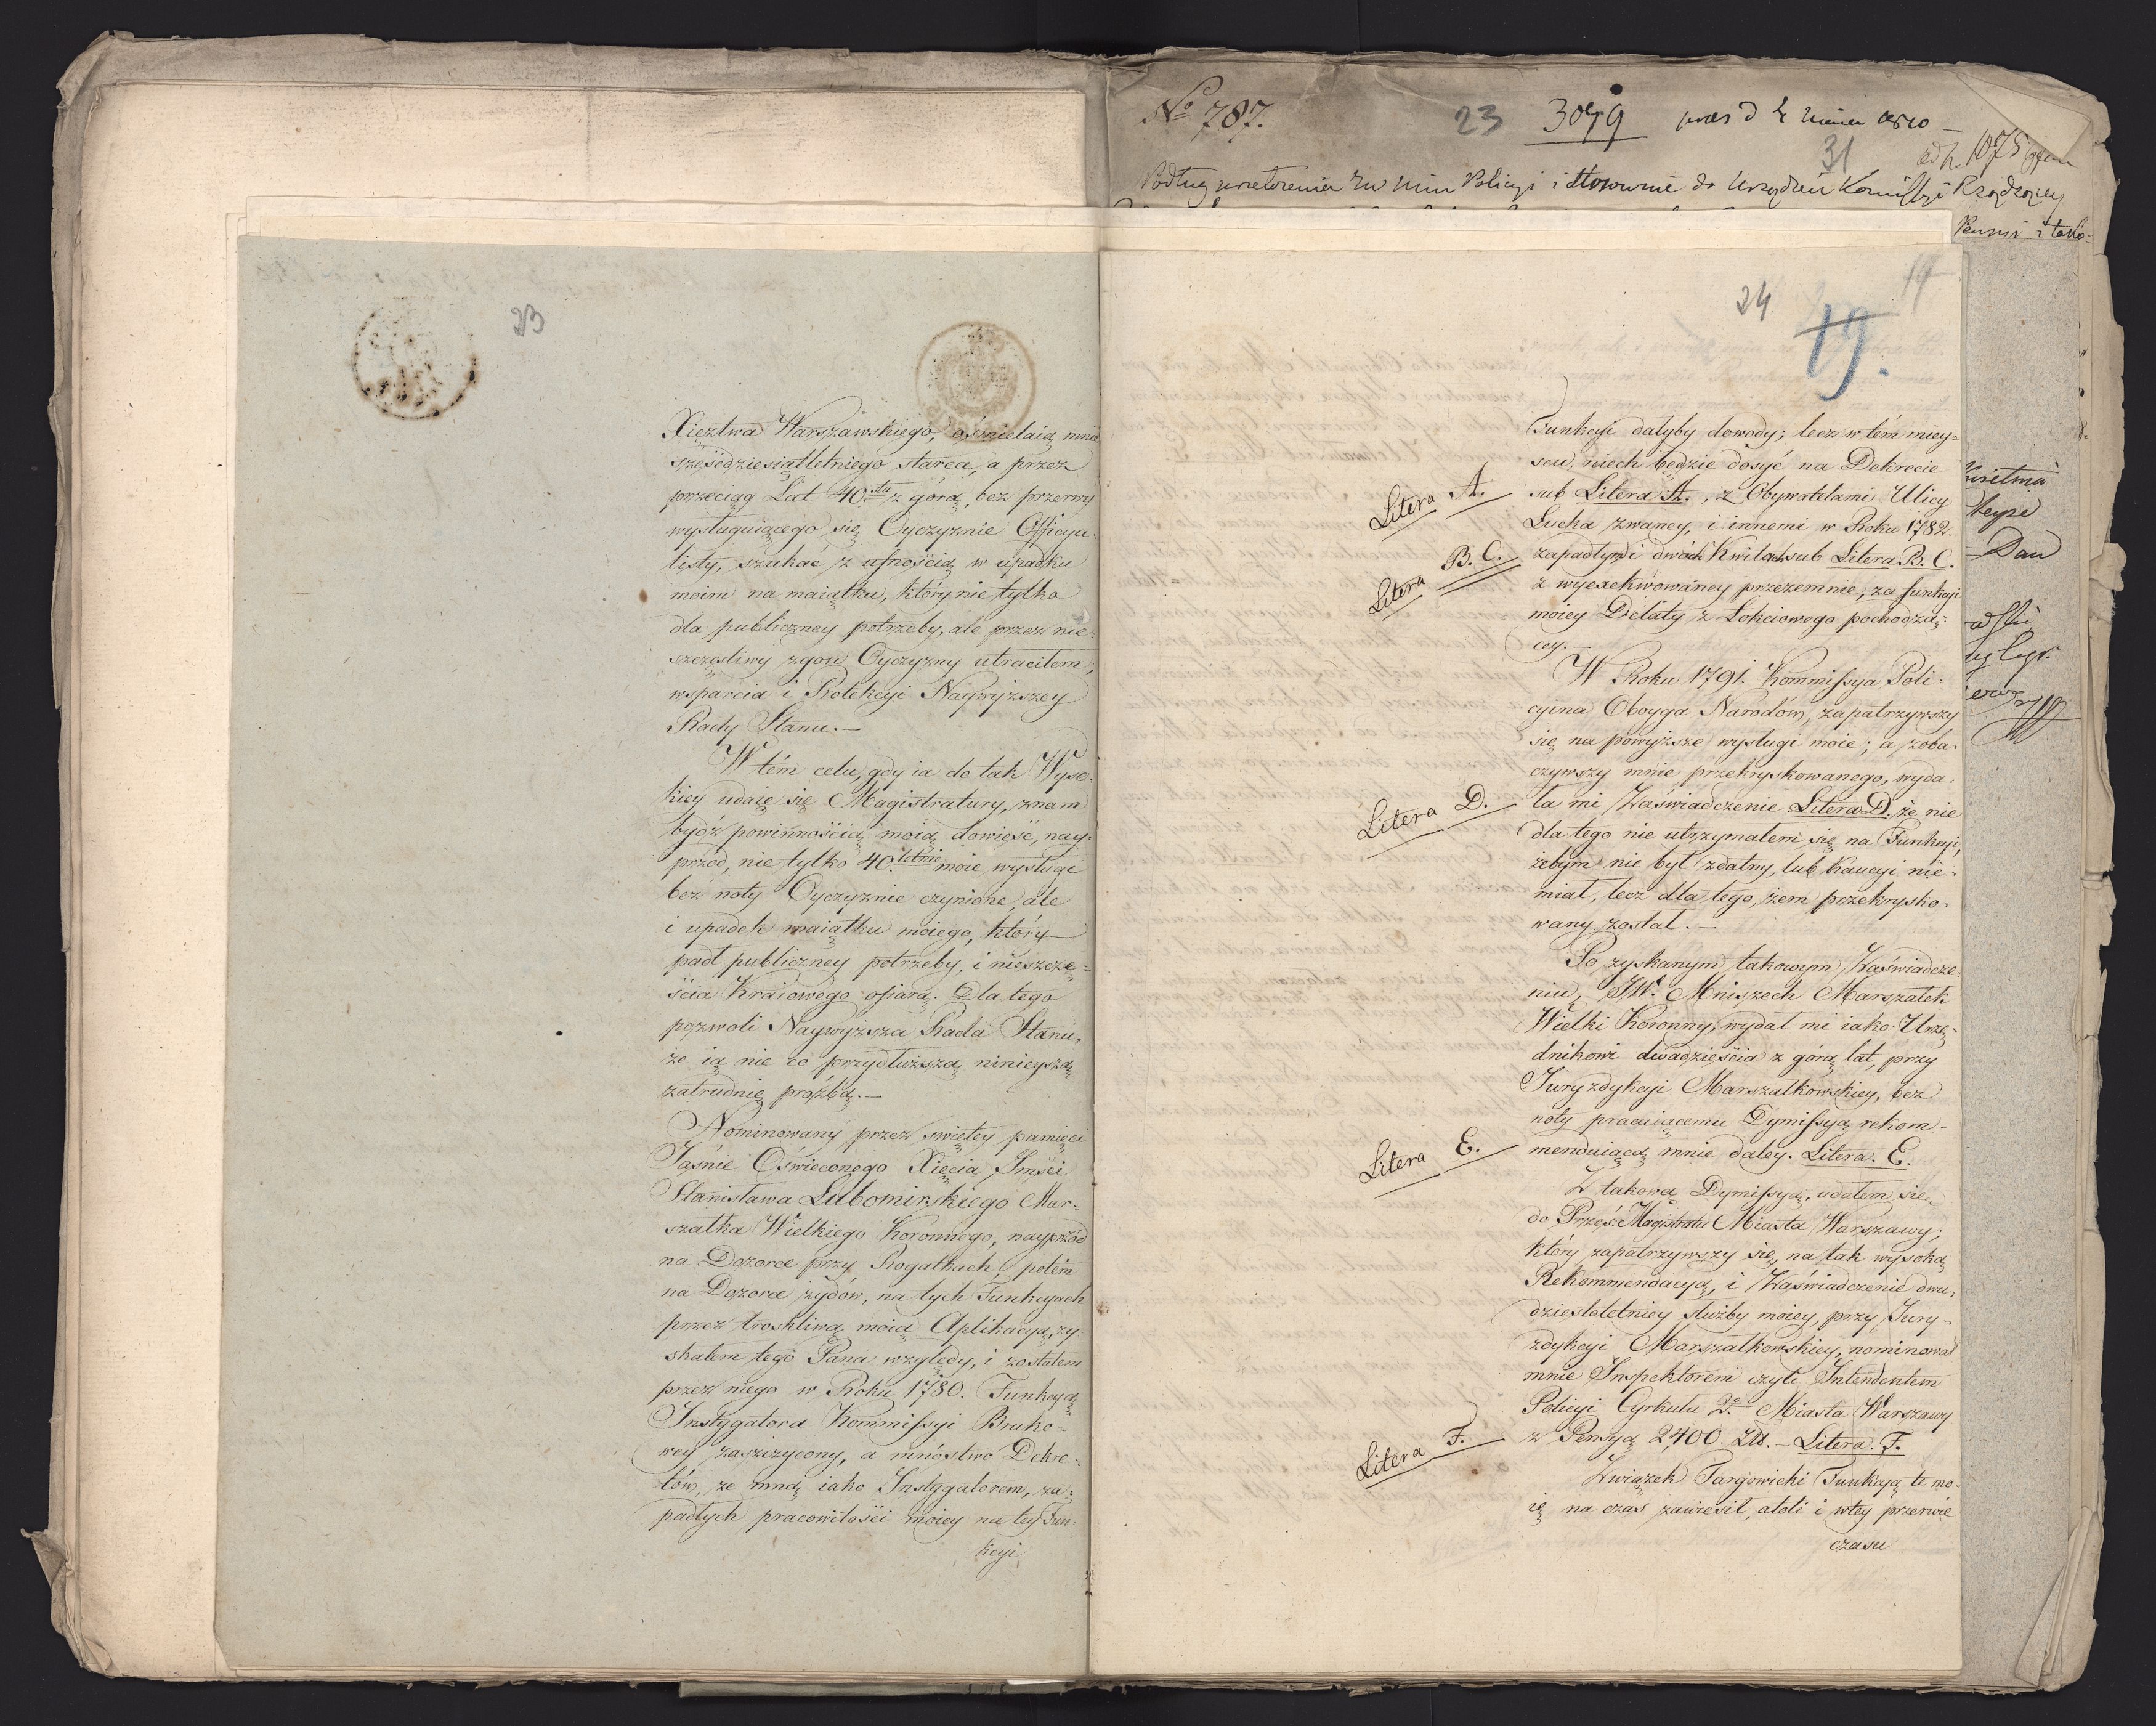 23
Xięztwa Warszawskiego, ośmielaią mnie
sześćdziesiątletniego starca, a przez
przeciąg Lat 40.stu z górą, bez przerwy
wysługuiącego się Oyczyznie Officya-
listy, szukać z ufnością w upadku
moim na maiątku, który nie tylko
dla publiczney potrzeby, ale przez nie-
szczęśliwy zgon Oyczyzny utraciłem;
wsparcia i Protekcyi Naywyższey
Rady Stanu.—
W tém celu, gdy ia do tak Wyso-
kiey udaię się Magistratury, znam
bydź powinnością moią dowieść, nay-
przód, nie tylko 40.letnie moie wysługi
bez noty Oyczyznie czynione, ale
i upadek maiątku moiego, który
padł publiczney potrzeby, i nieszczę=
ścia Kraiowego ofiarą. Dla tego
pozwoli Naywyższa Rada Stanu,
że ią nie co przydłuższą ninieyszą
zatrudnię prożbą.—
Nominowany przez swiętey pamięci
Jaśnie Oświeconego Xięcia Jmści
Stanisława Lubomirskiego Mar=
szałka Wielkiego Koronnego, nayprzód
na Dozorcę przy Rogatkach, potém
na Dozorcę żydów, na tych Funkcyach
przez troskliwą moią Aplikacyą, zy-
skałem tego Pana względy, i zostałem
przez niego w Roku 1780. Funkcyą
Instygatora Kommissyi Bruko-
wey zaszczycony, a mnóstwo Dekre-
tów, ze mną iako Instygatorem, za-
padłych pracowitości moiey na tey Fun-
kcyi
No 787.
23
3079
31
1075
Podług Policyi i stosownie do Urządzeń Kommissyi Rządzącey
Pensyi i
24
19.
Funkcyi dałyby dowody; lecz w tém miey=
scu, niech będzie dosyć na Dekrecie
Litera A.
sub Litera A., z Obywatelami Ulicy
Łucka zwaney, i innemi w Roku 1782.
Litera B. C.
zapadłym i dwóch Kwitach sub Litera B. C.
z wyexekwowaney przezemnie, za funkcyi
moiey Delaty z Łokciowego pochodzą-
cey.—
W Roku 1791. Kommissya Poli-
cyina Oboyga Narodów, zapatrzywszy
się na powyższe wysługi moie; a zoba-
czywszy mnie przekryskowanego, wyda-
Litera D.
ła mi Zaświadczenie Litera D. że nie
dla tego nie utrzymałem się na Funkcyi,
żebym nie był zdatny, lub Kaucyi nie
miał, lecz dla tego, żem przekrysko-
wany został.—
Po zyskanym takowym Zaświadcze-
niu, JW. Mniszech Marszałek
Wielki Koronny, wydał mi iako Urzę-
dnikowi dwadzieścia z górą lat, przy
Juryzdykcyi Marszałkowskiey, bez
noty pracuiącemu Dymissyą rekom-
Litera E.
menduiącą mnie daley. Litera. E.
Z takową Dymissyą, udałem się
do Prześ: Magistratu Miasta Warszawy;
który zapatrzywszy się, na tak wysoką
Rekommendacyą, i Zaświadczenie dwu-
dziestoletniey służby moiey, przy Jury-
zdykcyi Marszałkowskiey, nominował
mnie Inspektorem czyli Intendentem
Policyi Cyrkułu 2. Miasta Warszawy
Litera F.
z Pensyą 2,400. Zł.— Litera. F.
Związek Targowicki Funkcyą tę mo-
ię na czas zawiesił, atoli i wtey przerwie
czasu